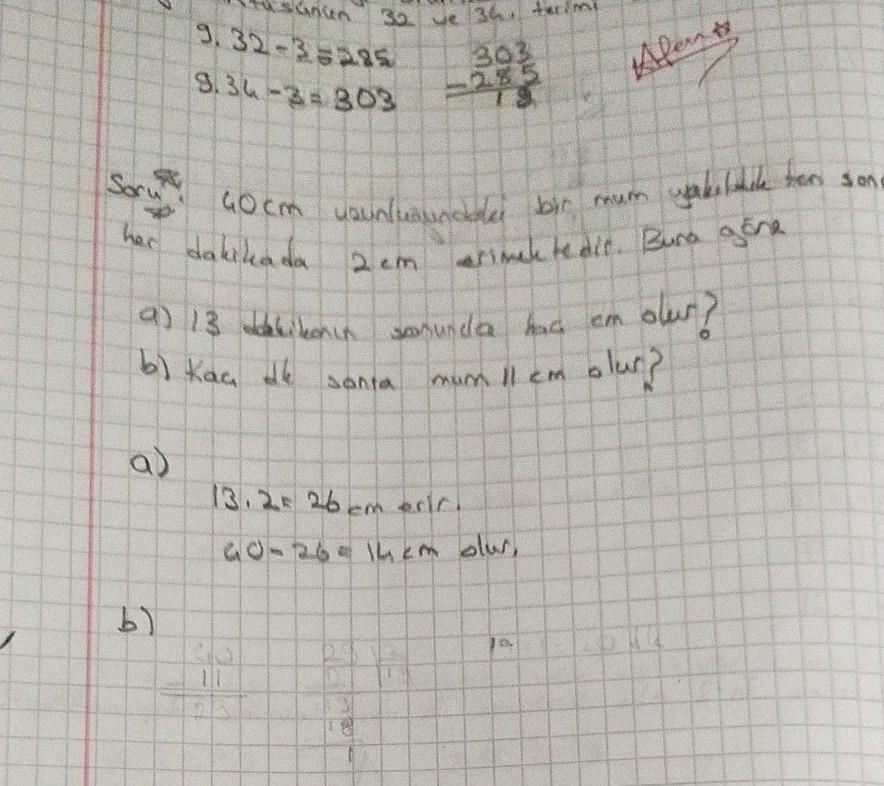 32 ve 34. terimi
9.32-3=285
303
9.34-3=303
-285
18
Soru: 40cm uzunluğundaki bir mum yakıldıktan son
her dakikada 2cm erimektedir. Buna göre
a) 13 dakikanın sonunda kaç cm olur?
b) Kaç dk sonra mum 11 cm olur?
a)
13.2=26cm erir.
40-26=14cm olur.
b)
40
11
29